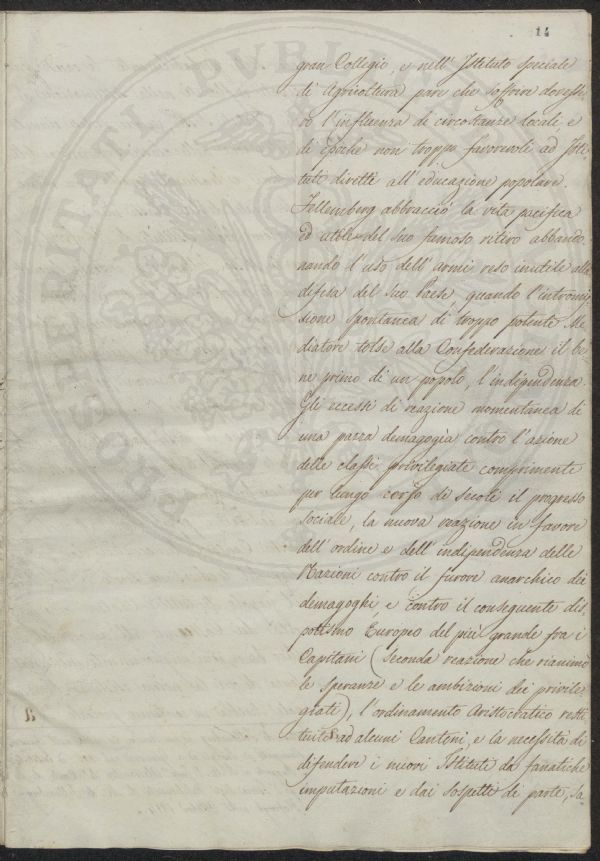 14
gran Collegio, e nell' Istituto speciale
di Agricoltura pare che soffrire doves=
se l'influenza di circostanze locali e
di epoche non troppo favorevoli ad Isti=
tuti diretti all'educazione popolare.
Fellemberg abbracciò la vita pacifica
ed utile del suo famoso ritiro abbando=
nando l'uso dell'armi reso inutile alla
difesa del suo Paese, quando l'intromis=
sione spontanea di troppo potente Me=
diatore tolse alla Confederazione il be=
ne primo di un popolo, l'indipendenza.
Gli eccessi di reazione momentanea di
una pazza demagogia contro l'azione
delle classi privilegiate comprimente
per lungo corso di secoli il progresso
sociale, la nuova reazione in favore
dell'ordine e dell'indipendenza delle
Nazioni contro il furore anarchico dei
demagoghi, e contro il conseguente dis=
potismo Europeo del più grande fra i
Capitani (seconda reazione che rianimò
le speranze e le ambizioni dei privile=
giati), l'ordinamento Aristocratico resti=
tuito ad alcuni Cantoni, e la necessità di
difendere i nuovi Istituti da fanatiche
imputazioni e dai sospetti di parte, sa
POSTERITATI PUBLICAE